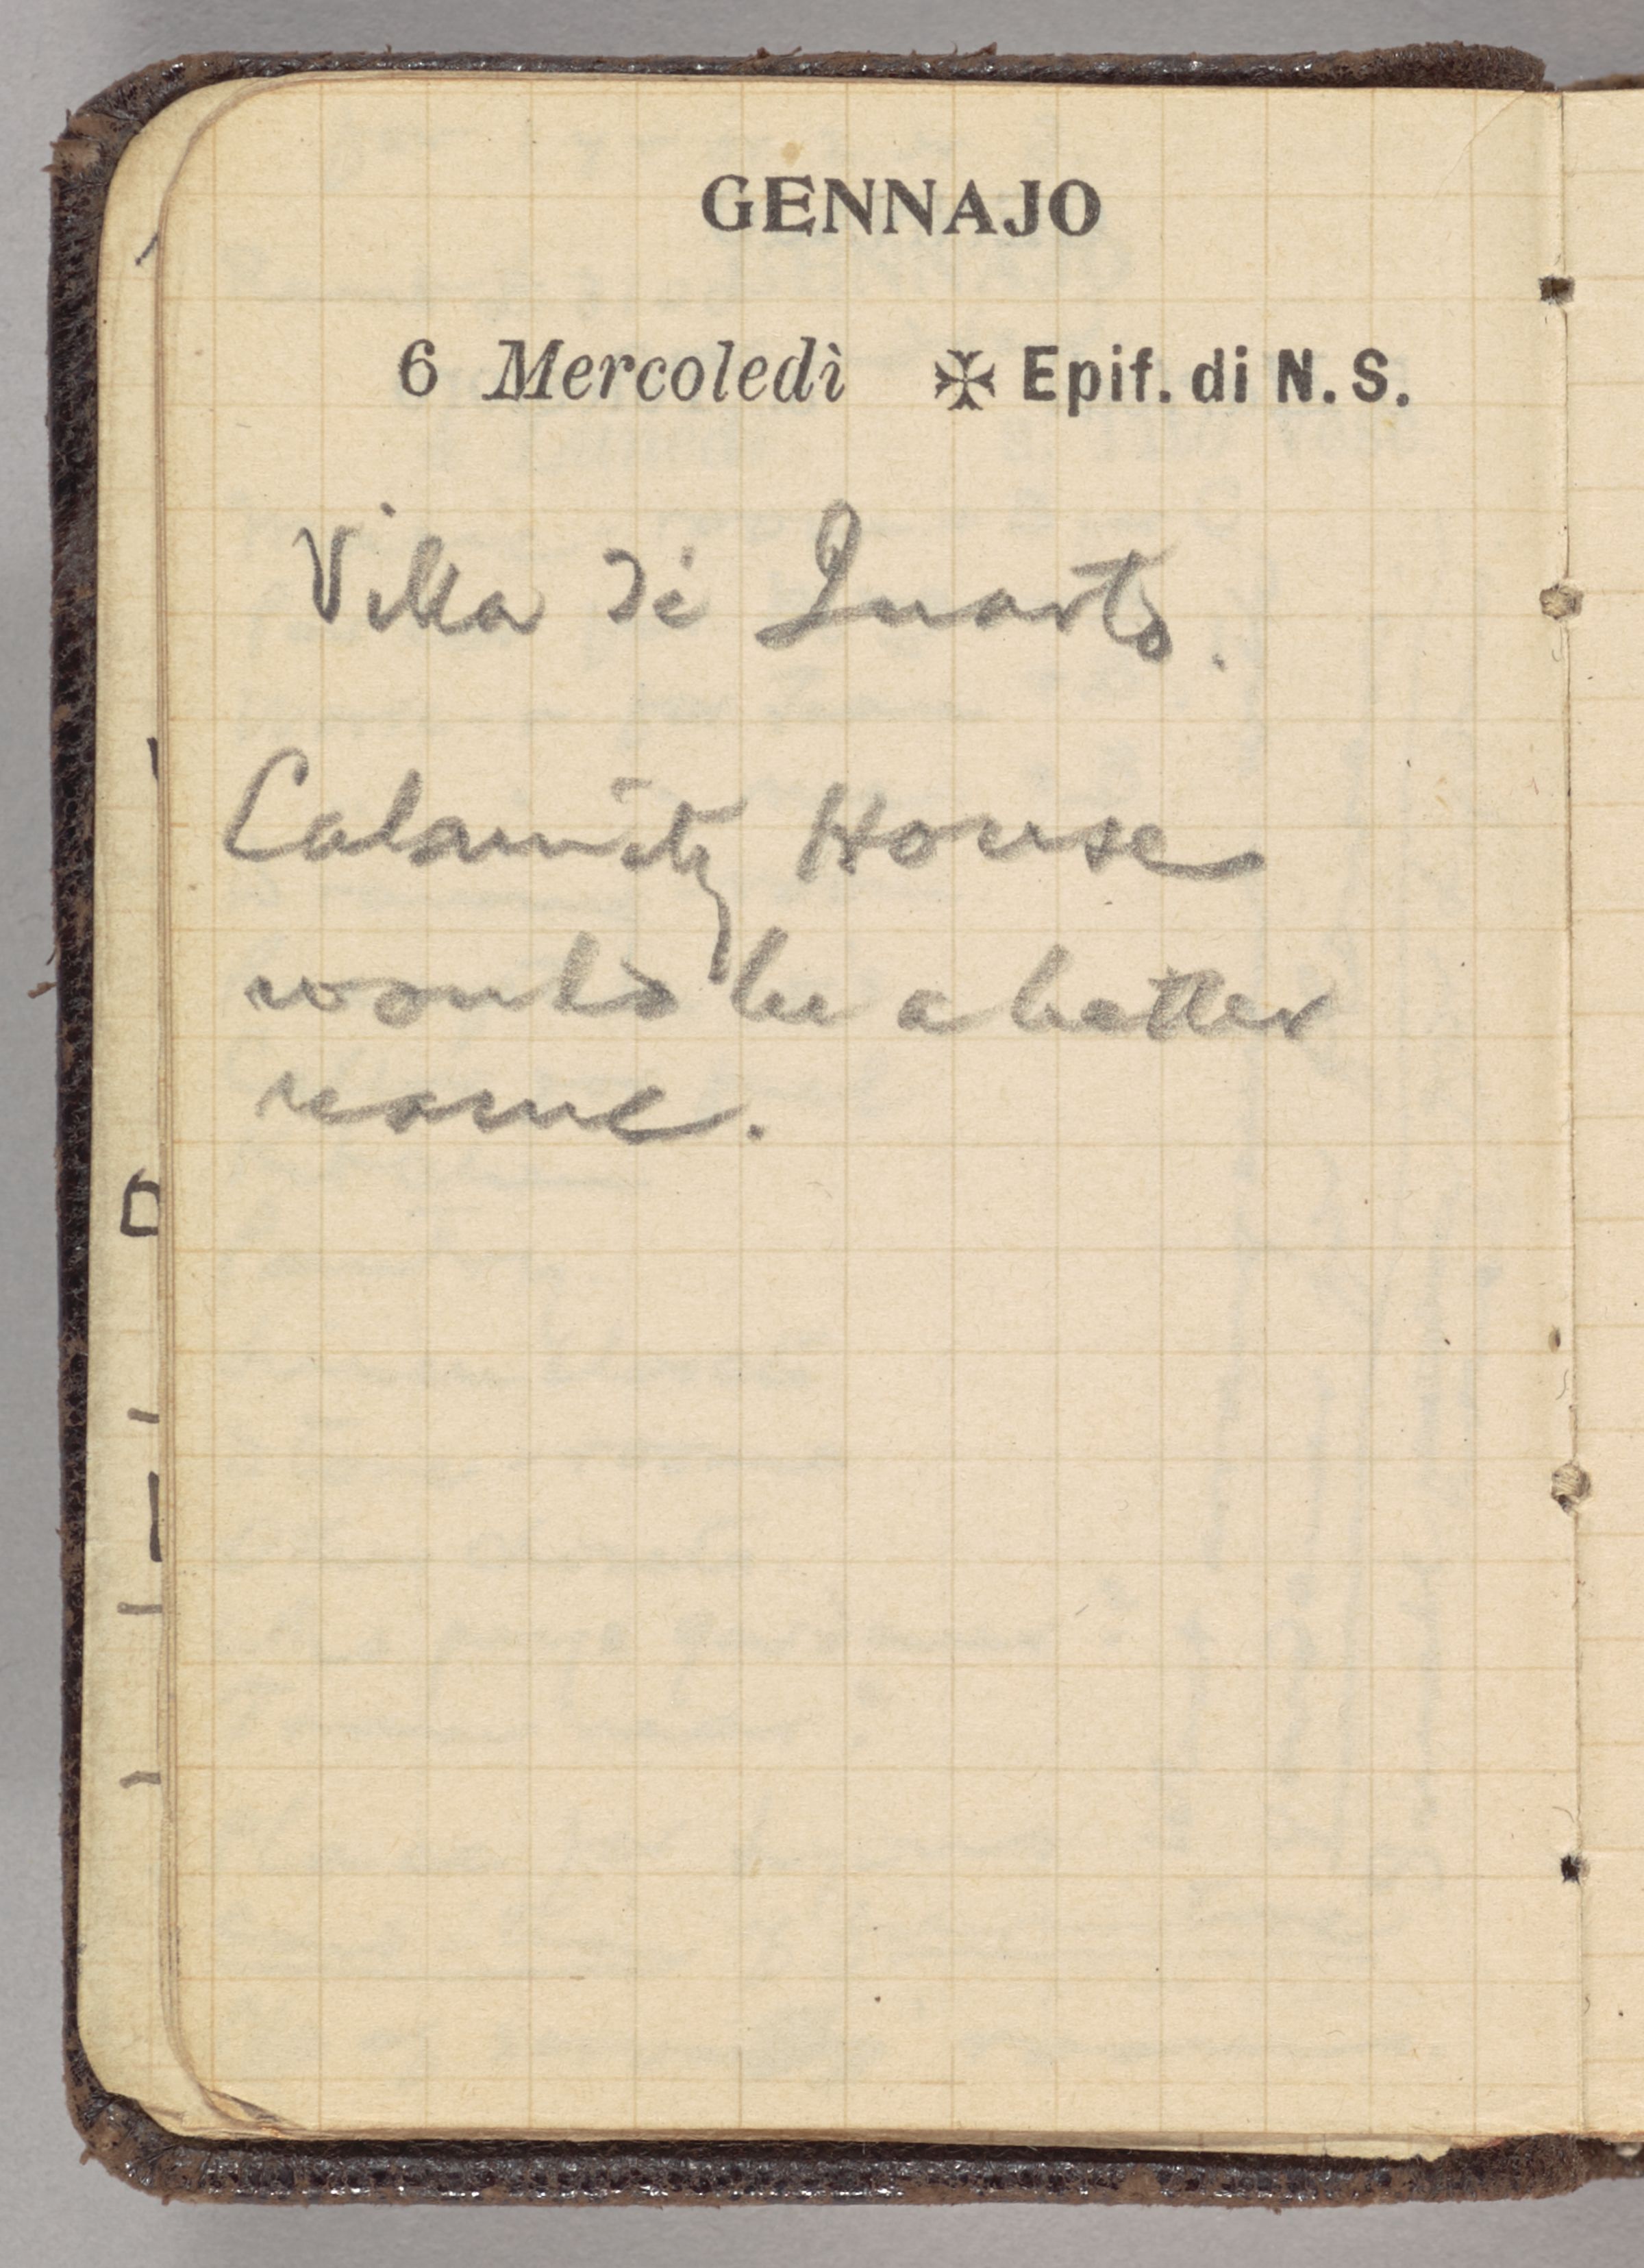 GENNAJO
6 Mercoledì ✠ Epif. di N. S.
Villa di Quarto.
Calamity House
would be a better
name.